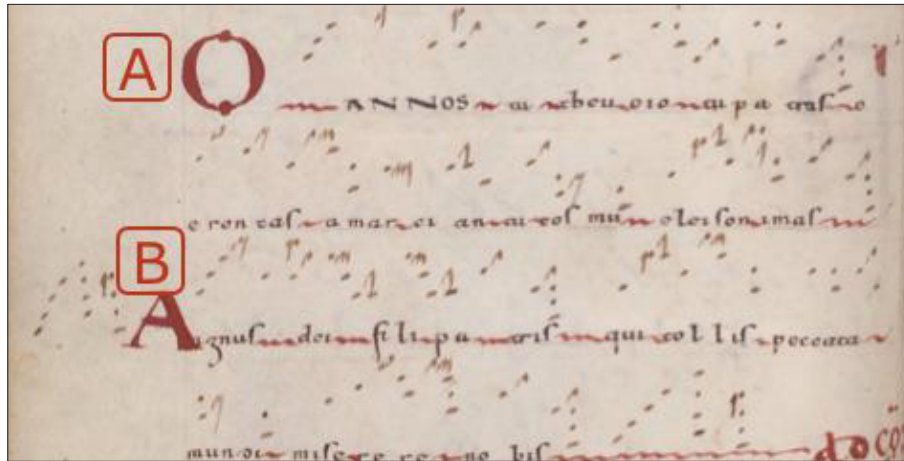 A
O ANNOS tu theu o io tu pa tras o
e ron tas amar ti an tu cos mu eleison imas
B
Agnus dei fi li pa tris qui tol lis peccata
mun di mise re re no bis